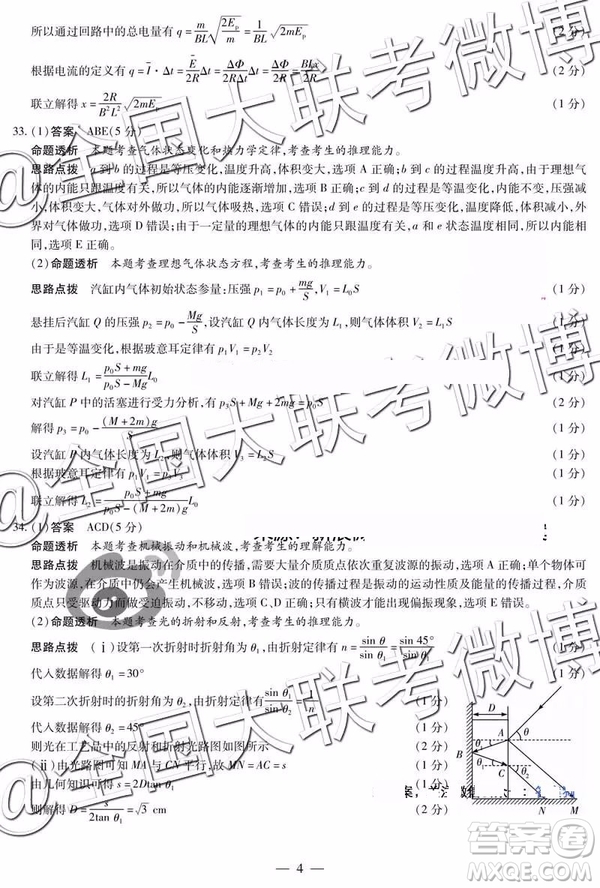 所以通过回路中的总电量有 q = m/BL √(2Eₚ/m) = 1/BL √(2mEₚ) (2 分)
根据电流的定义有 q = Ī · Δt = Ē/2R Δt = ΔΦ/2RΔt Δt = ΔΦ/2R = BLx/2R (2 分)
联立解得 x = 2R/B²L² √(2mEₚ) (1 分)
33. (1) 答案 ABE(5 分)
命题透析 本题考查气体状态变化和热力学定律,考查考生的推理能力。
思路点拨 a 到 b 的过程是等压变化,温度升高,体积变大,选项 A 正确;b 到 c 的过程温度升高,由于理想气
体的内能只跟温度有关,所以气体的内能逐渐增加,选项 B 正确;c 到 d 的过程温度不变,内能不变,压强减
小,体积变大,气体对外做功,所以气体吸热,选项 C 错误;d 到 e 的过程是等压变化,温度降低,体积变小,外
界对气体做功,选项 D 错误;由于一定量的理想气体的内能只跟温度有关,a 和 e 状态温度相同,所以内能
相同,选项 E 正确。
(2) 命题透析 本题考查理想气体状态方程,考查考生的推理能力。
思路点拨 汽缸内气体初始状态参量:压强 p₁ = p₀ + mg/S, V₁ = L₀S (1 分)
悬挂后汽缸 Q 的压强 p₂ = p₀ − Mg/S,设汽缸 Q 内气体长度为 L₁,则气体体积 V₂ = L₁S (1 分)
由于是等温变化,根据玻意耳定律有 p₁V₁ = p₂V₂ (1 分)
联立解得 L₁ = (p₀S + mg)/(p₀S − Mg) L₀ (1 分)
对汽缸 P 中的活塞进行受力分析,有 p₃S + Mg + 2mg = p₀S (2 分)
解得 p₃ = p₀ − (M + 2m)g/S (1 分)
设汽缸 P 内气体长度为 L₂,则气体体积 V₃ = L₂S (1 分)
根据玻意耳定律有 p₁V₁ = p₃V₃ (1 分)
联立解得 L₂ = (p₀S + mg)/(p₀S − (M + 2m)g) L₀ (1 分)
34. (1) 答案 ACD(5 分)
命题透析 本题考查机械振动和机械波,考查考生的理解能力。
思路点拨 机械波是振动在介质中的传播,需要大量介质质点依次重复波源的振动,选项 A 正确;单个物体可
作为波源,在介质中仍会产生机械波,选项 B 错误;波的传播过程是波源的运动性质及能量的传播,介质
质点只受迫振动而不移动,选项 C、D 正确;只有横波才能出现偏振现象,选项 E 错误。
(2) 命题透析 本题考查光的折射和反射,考查考生的推理能力。
思路点拨 (ⅰ)设第一次折射时折射角为 θ₁,由折射定律有 n = sin θ/sin θ₁ = sin 45°/sin θ₁ (1 分)
代入数据解得 θ₁ = 30° (1 分)
设第二次折射时的折射角为 θ₂,由折射定律有 sin θ₁/sin θ₂ = 1/n (1 分)
代入数据解得 θ₂ = 45° (1 分)
则光在工艺品中的反射和折射光路图如图所示 (2 分)
(ⅱ)由光路图可知 MA 与 CN 平行,故 MN = AC = s (1 分)
由几何知识可得 s = 2Dtan θ₁ (1 分)
则解得 D = s/(2tan θ₁) = √3 cm (2 分)
D
A
θ
B
θ₁
C
N
M
— 4 —
@全国大联考微博
@全国大联考微博
@全国大联考微博
答案圈
MXQE.COM